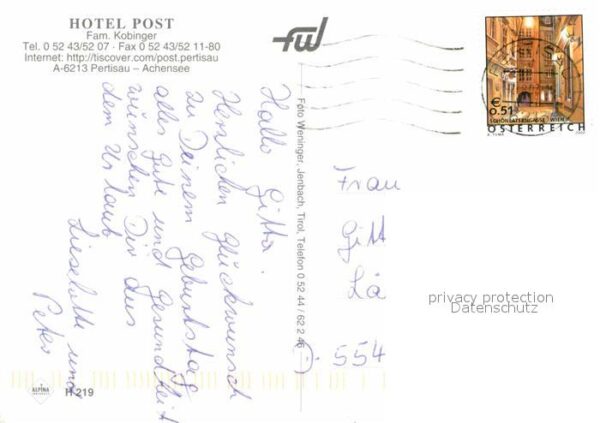 HOTEL POST
Fam. Kobinger
Tel. 0 52 43/52 07 · Fax 0 52 43/52 11-80
Internet: http://tiscover.com/post.pertisau
A-6213 Pertisau – Achensee
fwl
€ 0,51
SCHÖNLATERNGASSE, WIEN
ÖSTERREICH
Hallo Gitta!
Herzlichen Glückwunsch
zu Deinem Geburtstag
alles Gute und Gesundheit
wünschen Dir aus
dem Urlaub
Lieselotte und
Peter
Foto Weninger, Jenbach, Tirol, Telefon 0 52 44 / 62 2 46
Frau
Gitt
Lä
554
privacy protection
Datenschutz
ALPINA
H 219